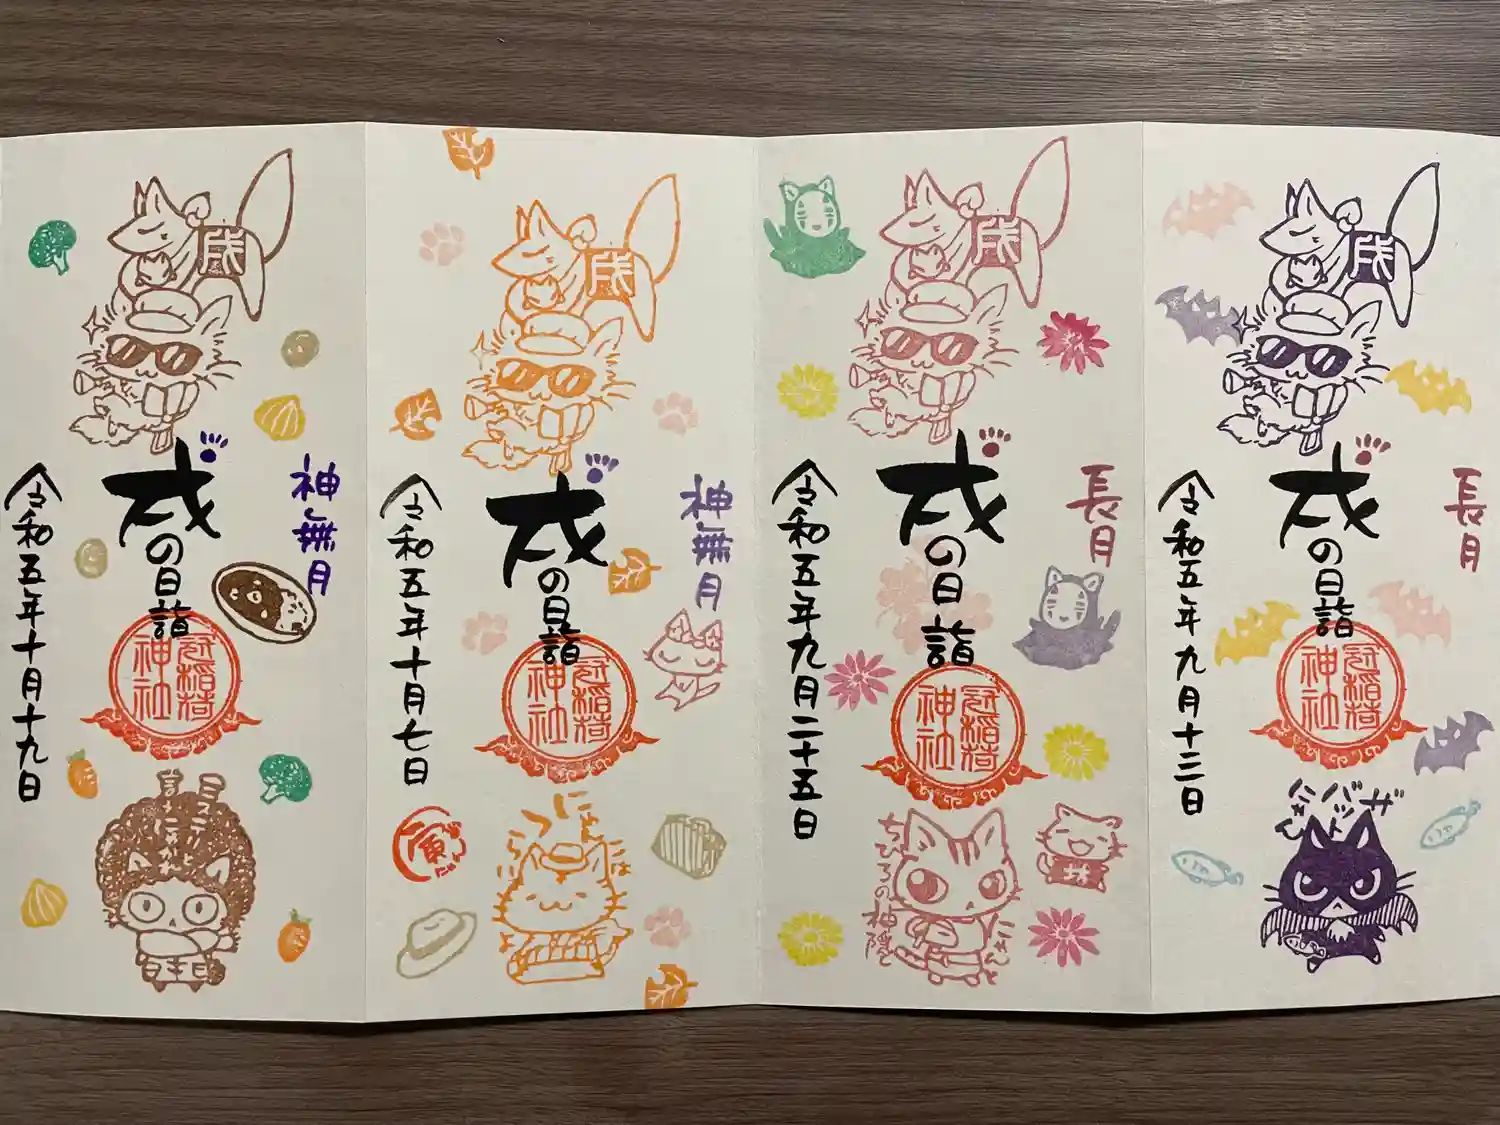 長月
戌
戌の日詣
冠稲荷
神社
令和五年九月十三日
バットにゃん
長月
戌
戌の日詣
冠稲荷
神社
令和五年九月二十五日
ちひろの神隠し
坊
神無月
戌
戌の日詣
冠稲荷
神社
令和五年十月七日
寅
神無月
戌
戌の日詣
冠稲荷
神社
令和五年十月十九日